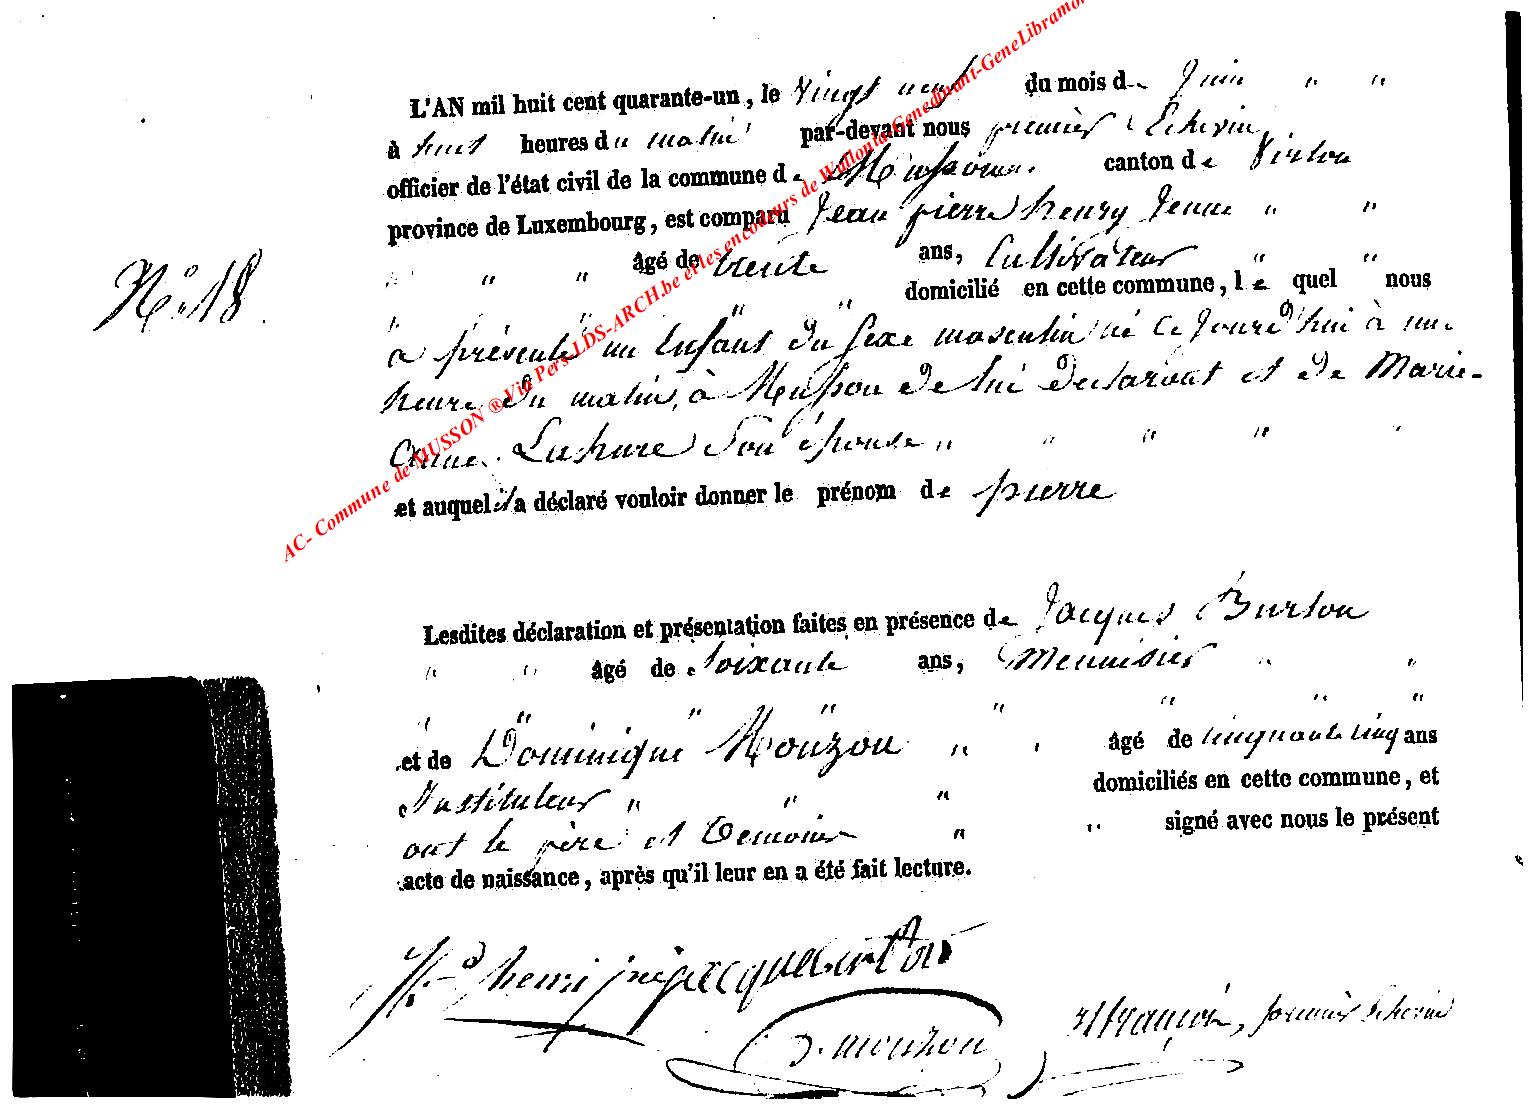 L'AN mil huit cent quarante-un, le vingt neuf du mois de Juin " "
à huit heures du matin par-devant nous premier Echevin
officier de l'état civil de la commune de Musson canton de Virton
province de Luxembourg, est comparu Jean pierre henry Jenne " "
" " " âgé de trente ans, Cultivateur " "
N.° 18
" " " domicilié en cette commune, le quel nous
a présenté un Enfant du sexe masculin né ce Jourd'hui à une
heure du matin, à Musson de lui déclarant et de Marie-
Anne Lahure Son épouse " " " " "
et auquel il a déclaré vouloir donner le prénom de pierre
Lesdites déclaration et présentation faites en présence de Jacques Burton
" " âgé de soixante ans, Menuisier " "
" " " " " " " "
et de Dominique Mouzon " " âgé de cinquante cinq ans
Instituteur " " " domiciliés en cette commune, et
ont le père et témoins " " signé avec nous le présent
acte de naissance, après qu'il leur en a été fait lecture.
henri jacque burton
D. mouzon
premier Echevin
AC- Commune de MUSSON ® Via Pers LDS-ARCH.be et les encodeurs de Wallonia-Genedinant-GeneLibramo